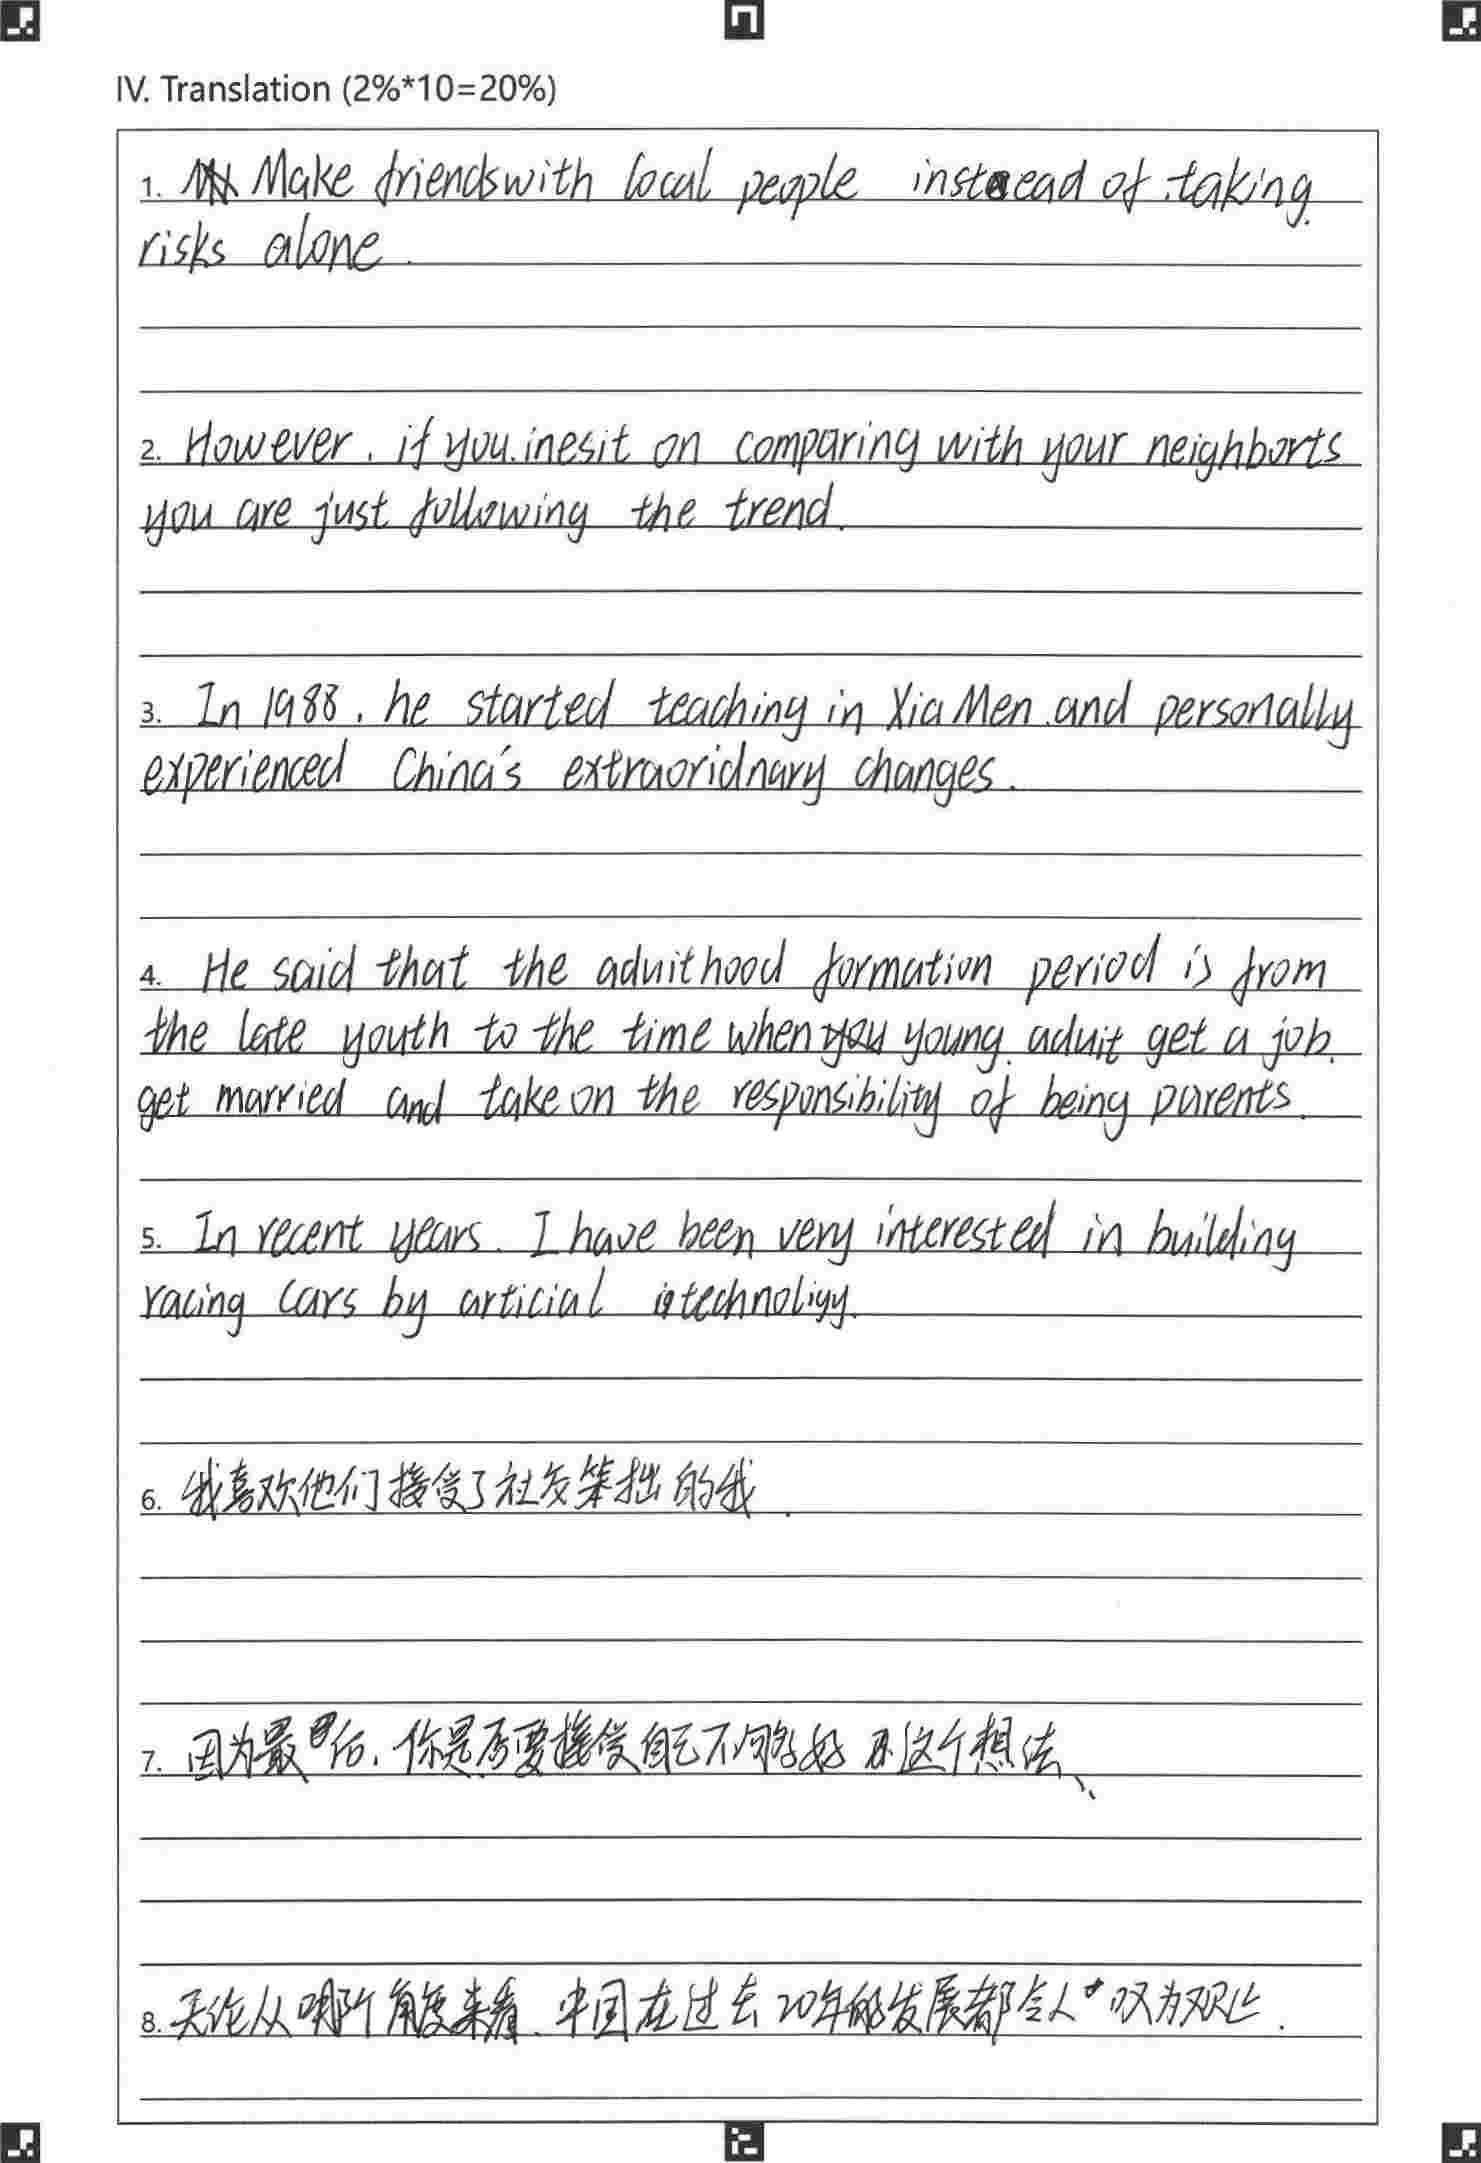 IV. Translation (2%*10=20%)
1. Make friends with local people instead of taking
risks alone.
2. However, if you inesit on comparing with your neighborts
you are just following the trend.
3. In 1988, he started teaching in XiaMen and personally
experienced China's extraoridnary changes.
4. He said that the aduithood formation period is from
the late youth to the time when young aduit get a job,
get married and take on the responsibility of being parents.
5. In recent years, I have been very interested in building
racing cars by articial technoligy.
6. 我喜欢他们接受了社交笨拙的我.
7. 因为最后,你是否要接受自己不够好这个想法、
8. 无论从哪个角度来看,中国在过去20年的发展都令人叹为观止.